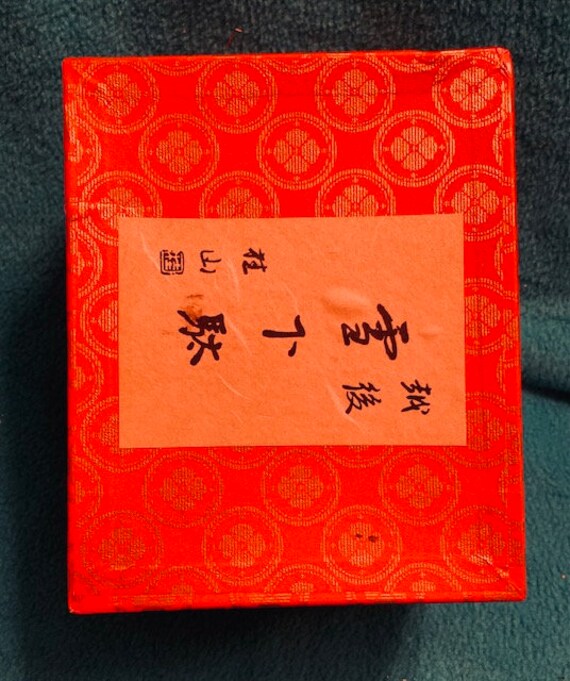 越後
雪下駄
桂山